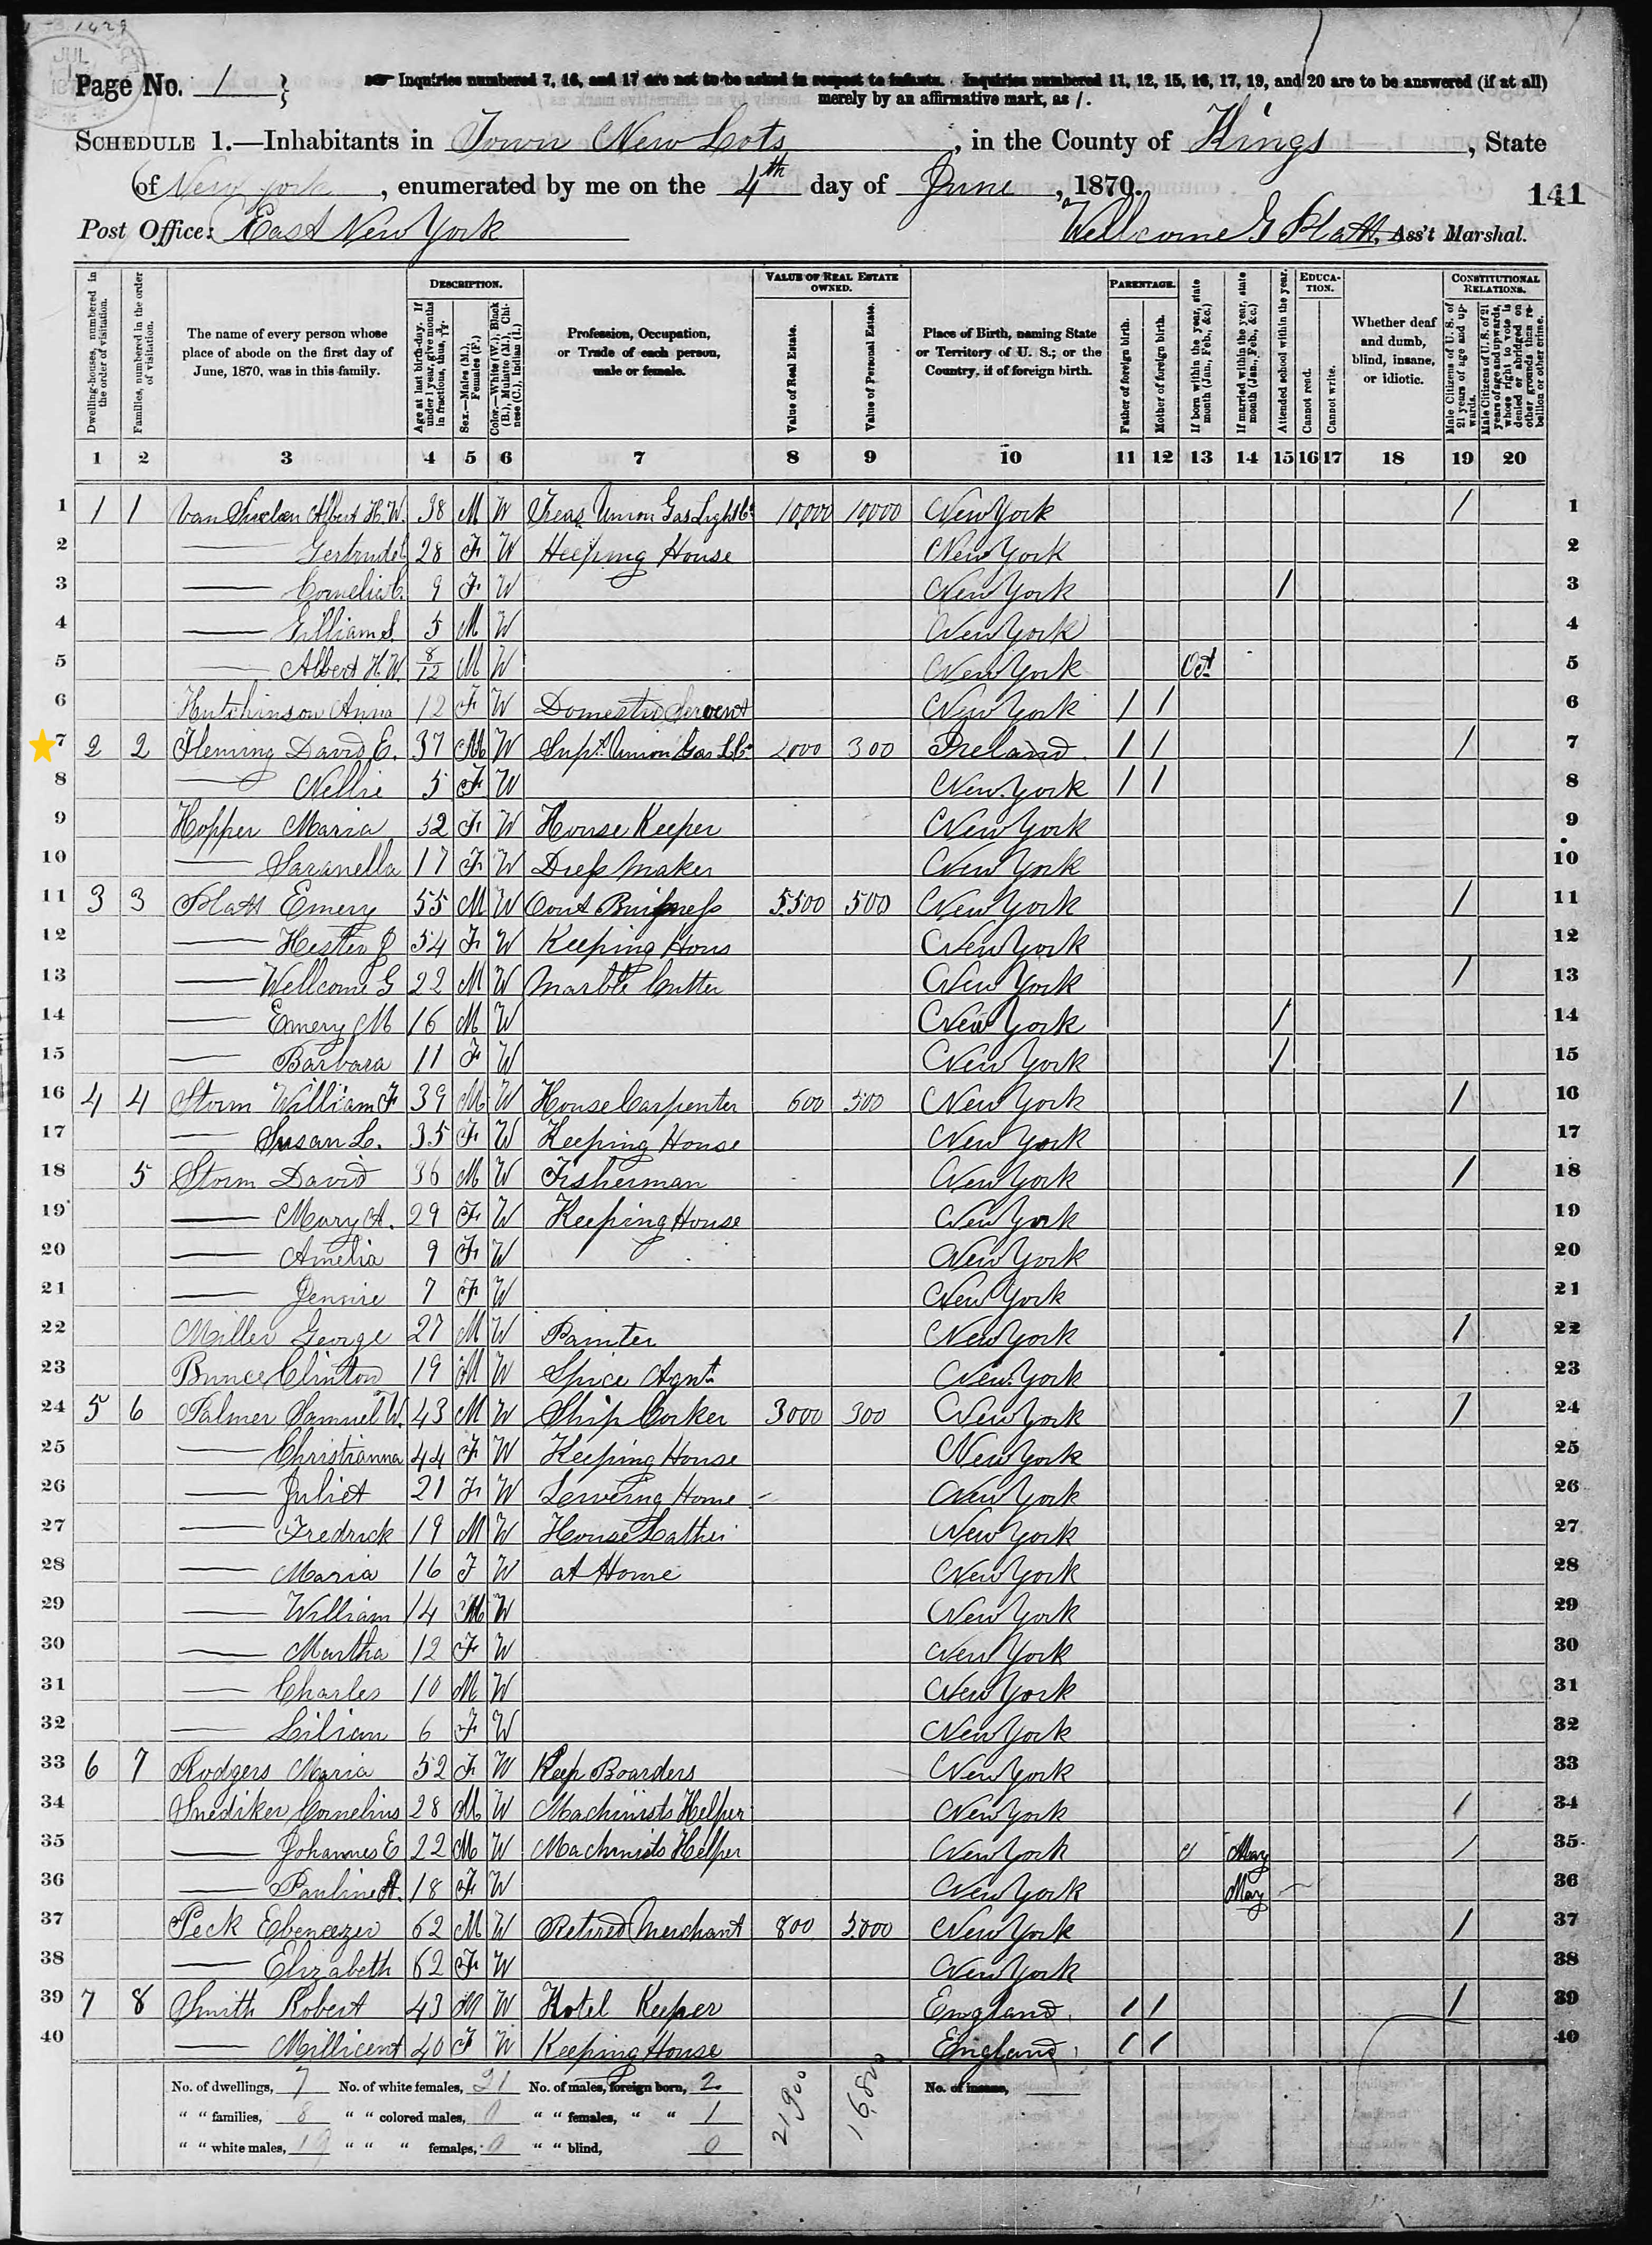 1429
JUL
Page No. 1
Inquiries numbered 7, 16, and 17 are not to be asked in respect to infants. Inquiries numbered 11, 12, 15, 16, 17, 19, and 20 are to be answered (if at all)
merely by an affirmative mark, as /.
SCHEDULE 1.—Inhabitants in Town New Lots, in the County of Kings, State
of New York, enumerated by me on the 4th day of June, 1870.
141
Post Office: East New York Wellcome G Platt, Ass't Marshal.
Dwelling-houses, numbered in the order of visitation.
Families, numbered in the order of visitation.
The name of every person whose place of abode on the first day of June, 1870, was in this family.
DESCRIPTION.
Age at last birth-day. If under 1 year, give months in fractions, thus, 3/12.
Sex.—Males (M.), Females (F.)
Color.—White (W.), Black (B.), Mulatto (M.), Chinese (C.), Indian (I.)
Profession, Occupation, or Trade of each person, male or female.
VALUE OF REAL ESTATE OWNED.
Value of Real Estate.
Value of Personal Estate.
Place of Birth, naming State or Territory of U. S.; or the Country, if of foreign birth.
PARENTAGE.
Father of foreign birth.
Mother of foreign birth.
If born within the year, state month (Jan., Feb., &c.)
If married within the year, state month (Jan., Feb., &c.)
Attended school within the year.
EDUCATION.
Cannot read.
Cannot write.
Whether deaf and dumb, blind, insane, or idiotic.
CONSTITUTIONAL RELATIONS.
Male Citizens of U. S. of 21 years of age and upwards.
Male Citizens of U. S. of 21 years of age and upwards, whose right to vote is denied or abridged on other grounds than rebellion or other crime.
1 2 3 4 5 6 7 8 9 10 11 12 13 14 15 16 17 18 19 20
1 1 1 Van Siclen Albert H. W. 38 M W Treas Union Gas Light Co 10,000 10,000 New York / 1
2 — Gertrude 28 F W Keeping House New York 2
3 — Cornelia C. 9 F W New York / 3
4 — Gilliam S. 5 M W New York 4
5 — Albert H. W. 8/12 M W New York Oct 5
6 Hutchinson Anna 12 F W Domestic Servent New York / / 6
7 2 2 Fleming David E. 37 M W Supt. Union Gas L Co 2,000 300 Ireland / / / 7
8 — Nellie 5 F W New York / / 8
9 Hopper Maria 32 F W House Keeper New York 9
10 — Saranella 17 F W Dress Maker New York 10
11 3 3 Platt Emery 55 M W 5,500 500 New York / 11
12 — Hester J 54 F W Keeping Hous New York 12
13 — Wellcome G 22 M W Marble Cutter New York / 13
14 — Emery M 16 M W New York / 14
15 — Barbara 11 F W New York / 15
16 4 4 Storm William F 39 M W House Carpenter 600 500 New York / 16
17 — Susan L. 35 F W Keeping House New York 17
18 5 Storm David 36 M W Fisherman New York / 18
19 — Mary A. 29 F W Keeping House New York 19
20 — Amelia 9 F W New York 20
21 — Jennie 7 F W New York 21
22 Miller George 27 M W Painter New York / 22
23 Bunce Clinton 19 M W Spice Agnt New York 23
24 5 6 Palmer Samuel W. 43 M W Ship Corker 3000 300 New York / 24
25 — Christianna 44 F W Keeping House New York 25
26 — Juliet 21 F W Home New York 26
27 — Fredrick 19 M W House Lather New York 27
28 — Maria 16 F W at Home New York 28
29 — William 14 M W New York 29
30 — Martha 12 F W New York 30
31 — Charles 10 M W New York 31
32 — Lilian 6 F W New York 32
33 6 7 Rodgers Maria 52 F W Keep Boarders New York 33
34 Snediker Cornelius 28 M W Machinists Helper New York / 34
35 — Johannes E 22 M W Machinists Helper New York May / 35
36 — Pauline A. 18 F W New York May 36
37 Peck Ebenezer 62 M W Retired Merchant 800 5,000 New York / 37
38 — Elizabeth 62 F W New York 38
39 7 8 Smith Robert 43 M W Hotel Keeper England / / / 39
40 — Millicent 40 F W Keeping House England / / 40
No. of dwellings, 7 No. of white females, 21 No. of males, foreign born, 2 21,900 16,800 No. of insane,
" " families, 8 " " colored males, 0 " " females, " " 1
" " white males, 19 " " " females, 0 " " blind, 0